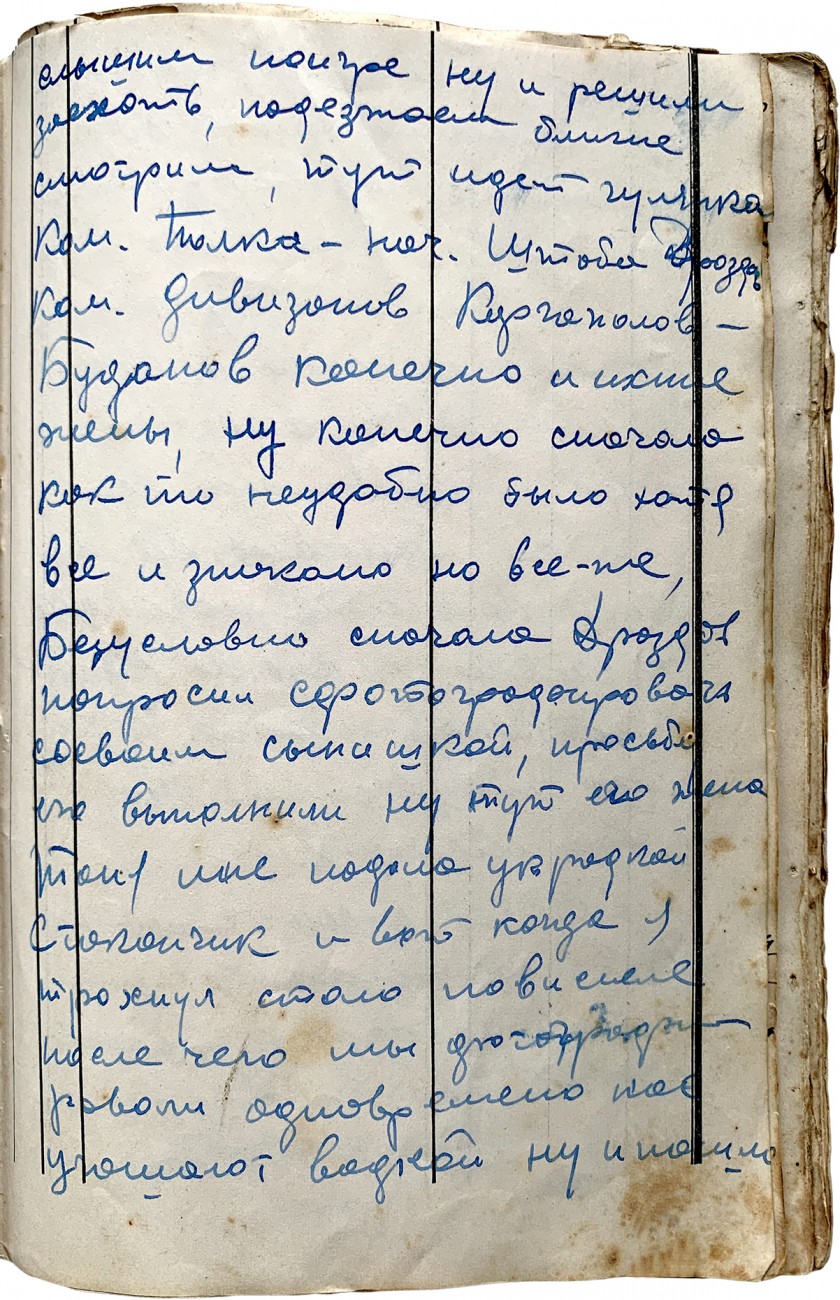 слышим поигре ну и решили
заехать, подезжаем ближе
смотрим, тут идет гулянка
ком. Полка – нач. Штаба Дроздов
ком. дивизонов Каргополов –
Буданов конечно и ихние
жены, ну конечно сначало
как то неудобно было хотя
все и знакомо но все-же,
Безусловно сначала Дроздов
попросил сфотографировать
сосвоим сынишкой, просьбу
его выполнили ну тут его жена
Тоня мне подала украдкой
Стаканчик и вот когда я
трахнул стало повиселе
после чего мы фотографи–
ровали одновремено нас
угошают водкой ну и пошло